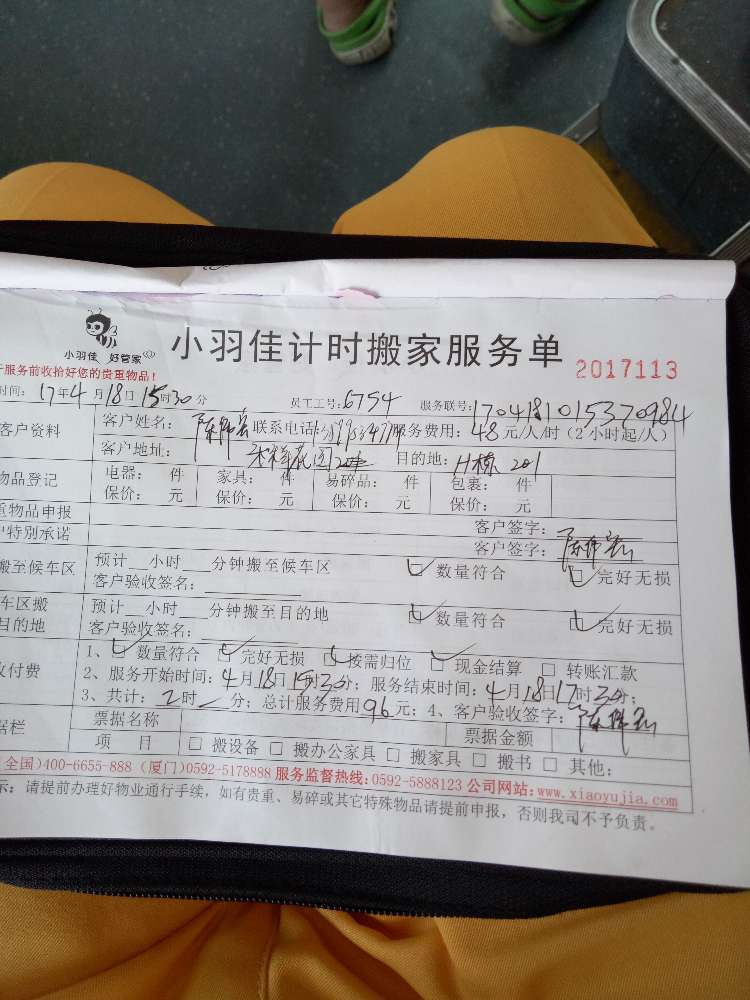 小羽佳 好管家
小羽佳计时搬家服务单
2017113
服务前收拾好您的贵重物品!
时间: 17年4月18日15时30分 员工工号: 6754 服务联号: 1704181015370984
客户资料 客户姓名: 联系电话: 服务费用: 48元/人/时(2小时起/人)
客户地址: 花园 目的地: H栋 201
物品登记 电器: 件 家具: 件 易碎品: 件 包裹: 件
保价: 元 保价: 元 保价: 元 保价: 元
重物品申报 客户签字:
特别承诺 客户签字:
搬至候车区 预计__小时___分钟搬至候车区 数量符合 完好无损
客户验收签名:
车区搬 预计__小时___分钟搬至目的地 数量符合 完好无损
目的地 客户验收签名:
付费 1、数量符合 完好无损 按需归位 现金结算 转账汇款
2、服务开始时间: 4月18日15时30分; 服务结束时间: 4月18日17时30分;
3、共计: 2时 分; 总计服务费用96元; 4、客户验收签字:
据栏 票据名称 票据金额
项 目 搬设备 搬办公家具 搬家具 搬书 其他:
全国)400-6655-888 (厦门)0592-5178888 服务监督热线:0592-5888123 公司网站:www.xiaoyujia.com
示: 请提前办理好物业通行手续,如有贵重、易碎或其它特殊物品请提前申报,否则我司不予负责。